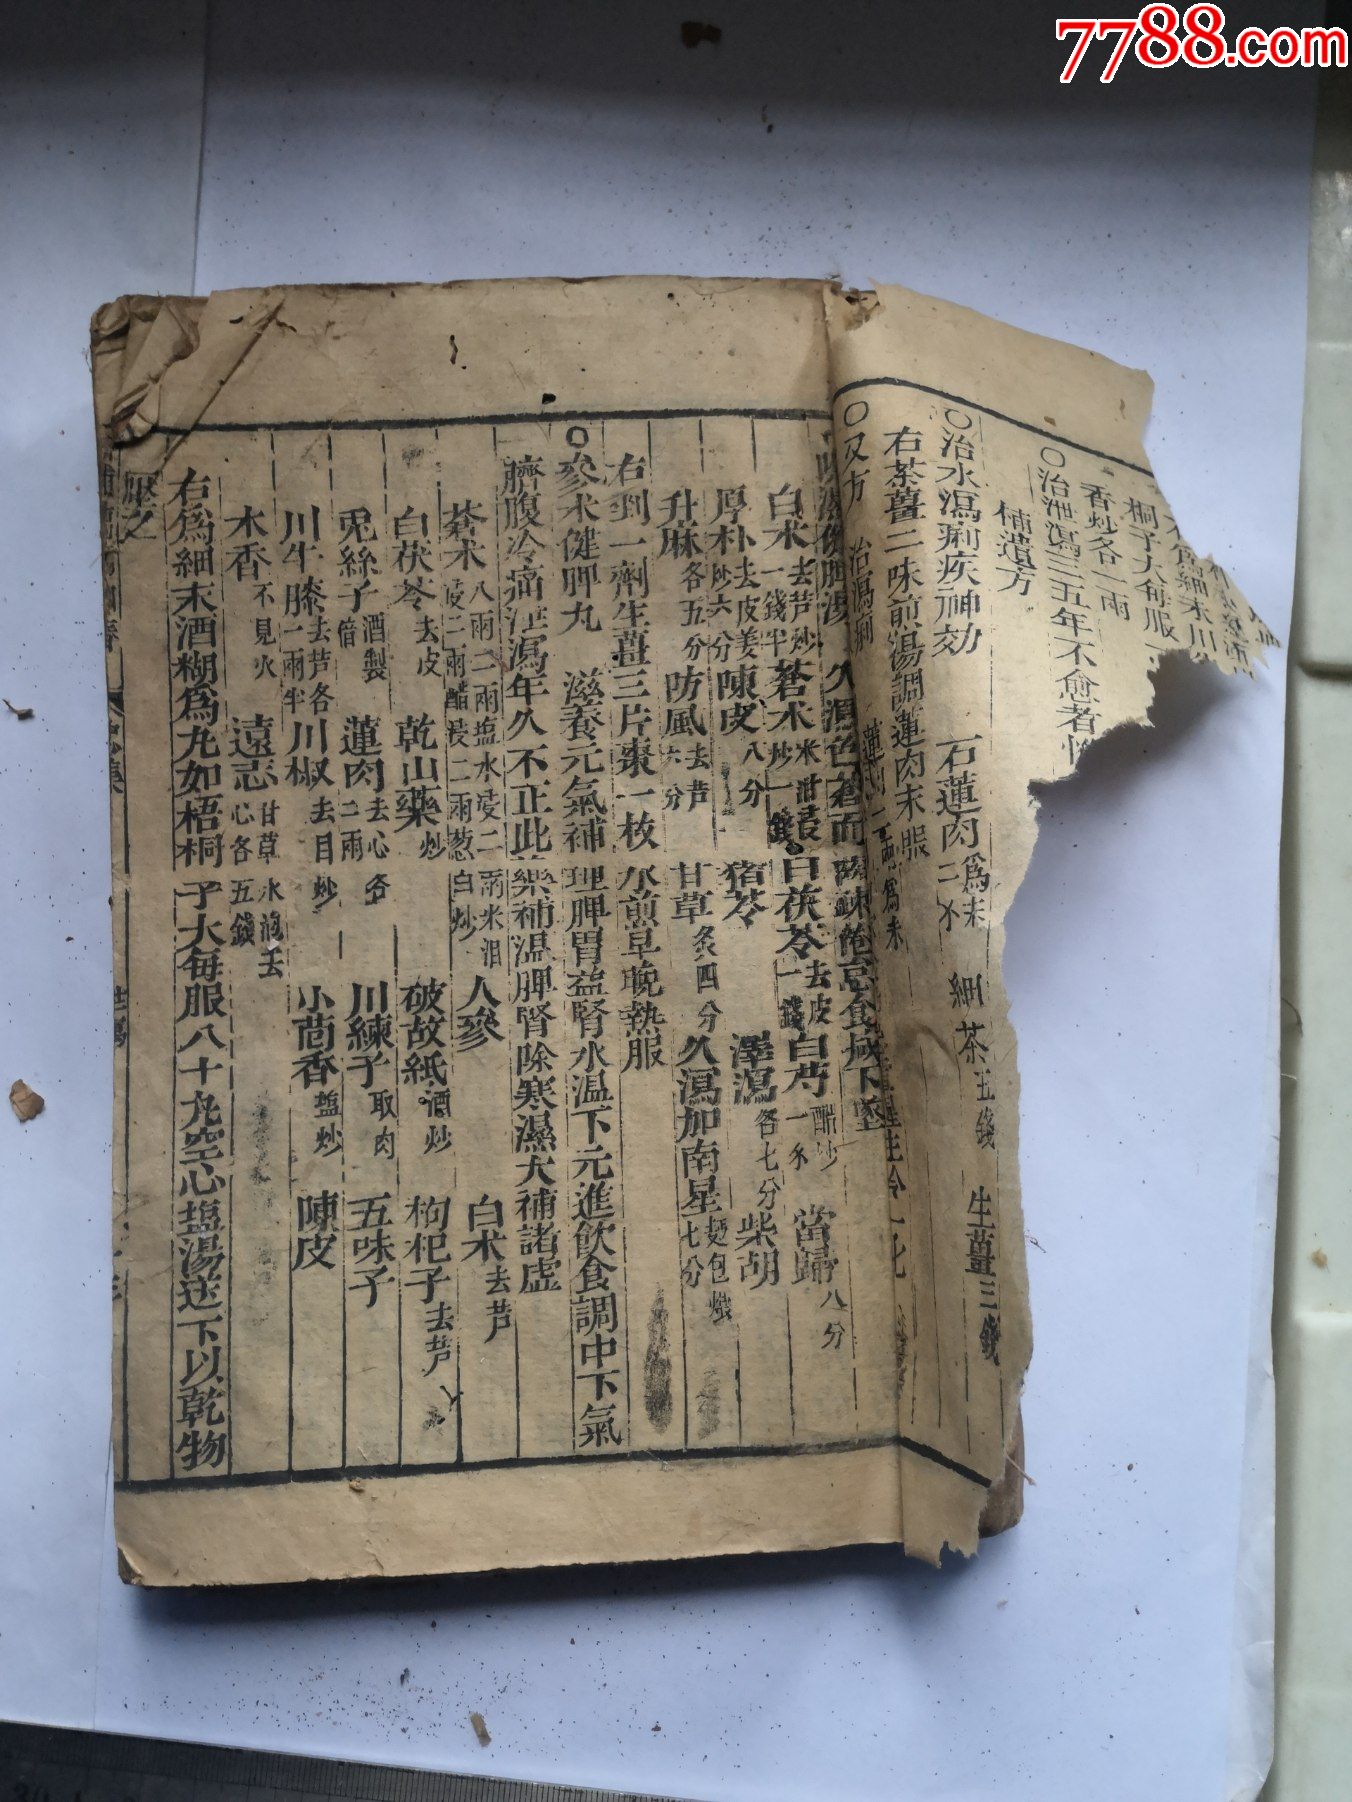 7788.com
木爲細末川
桐子大每服一
香炒各一兩
○治泄瀉三五年不愈者
補遺方
○治水瀉痢疾神効 石蓮肉爲末二 細茶五錢 生薑三錢
右茶薑二味煎湯調蓮肉末
○又方 治瀉痢
脾湯 久瀉色蒼而 忘食 下墜
白术去芦炒一錢半 蒼术米泔浸炒一錢 白茯苓去皮一錢 白芍酒炒一 當歸八分
厚朴去皮姜炒六分 陳皮八分 猪苓 澤瀉各七分 柴胡
升麻各五分 防風去芦六分 甘草炙四分 久瀉加南星麪包煨七分
右剉一劑生薑三片棗一枚水煎早晚熱服
○參术健脾丸 滋養元氣補理脾胃益腎水温下元進飲食調中下氣
臍腹冷痛泄瀉年久不止此藥補温脾腎除寒濕大補諸虛
蒼术八兩二兩塩水浸二兩米泔浸二兩醋浸二兩葱白炒 人參 白术去芦
白茯苓去皮 乾山藥炒 破故紙酒炒 枸杞子去芦
兎絲子酒製倍 蓮肉去心各二兩 川練子取肉 五味子
川牛膝去芦各一兩半 川椒去目炒 小茴香塩炒 陳皮
木香不見火 遠志甘草水泡去心各五錢
右爲細末酒糊爲丸如梧桐子大每服八十丸空心塩湯送下以乾物
壓之